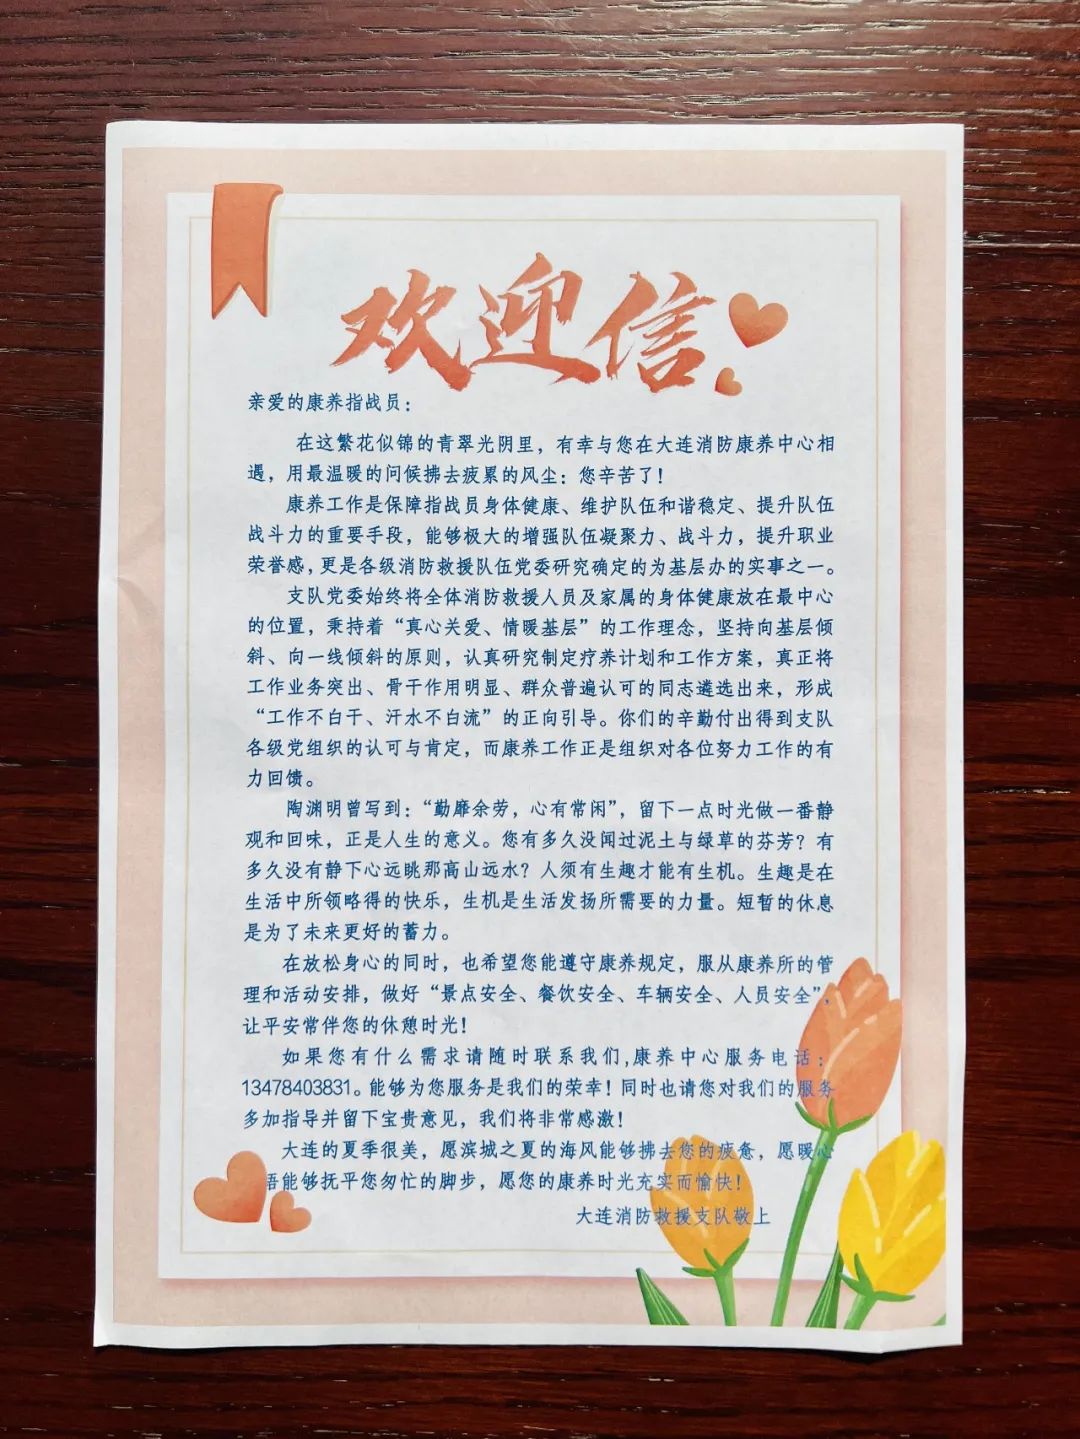 欢迎信
亲爱的康养指战员：
在这繁花似锦的青翠光阴里，有幸与您在大连消防康养中心相
遇，用最温暖的问候拂去疲累的风尘：您辛苦了！
康养工作是保障指战员身体健康、维护队伍和谐稳定、提升队伍
战斗力的重要手段，能够极大的增强队伍凝聚力、战斗力，提升职业
荣誉感，更是各级消防救援队伍党委研究确定的为基层办的实事之一。
支队党委始终将全体消防救援人员及家属的身体健康放在最中心
的位置，秉持着“真心关爱、情暖基层”的工作理念，坚持向基层倾
斜、向一线倾斜的原则，认真研究制定疗养计划和工作方案，真正将
工作业务突出、骨干作用明显、群众普遍认可的同志遴选出来，形成
“工作不白干、汗水不白流”的正向引导。你们的辛勤付出得到支队
各级党组织的认可与肯定，而康养工作正是组织对各位努力工作的有
力回馈。
陶渊明曾写到：“勤靡余劳，心有常闲”，留下一点时光做一番静
观和回味，正是人生的意义。您有多久没闻过泥土与绿草的芬芳？有
多久没有静下心远眺那高山远水？人须有生趣才能有生机。生趣是在
生活中所领略得的快乐，生机是生活发扬所需要的力量。短暂的休息
是为了未来更好的蓄力。
在放松身心的同时，也希望您能遵守康养规定，服从康养所的管
理和活动安排，做好“景点安全、餐饮安全、车辆安全、人员安全”，
让平安常伴您的休憩时光！
如果您有什么需求请随时联系我们,康养中心服务电话：
13478403831。能够为您服务是我们的荣幸！同时也请您对我们的服务
多加指导并留下宝贵意见，我们将非常感激！
大连的夏季很美，愿滨城之夏的海风能够拂去您的疲惫，愿暖心
能够抚平您匆忙的脚步，愿您的康养时光充实而愉快！
大连消防救援支队敬上